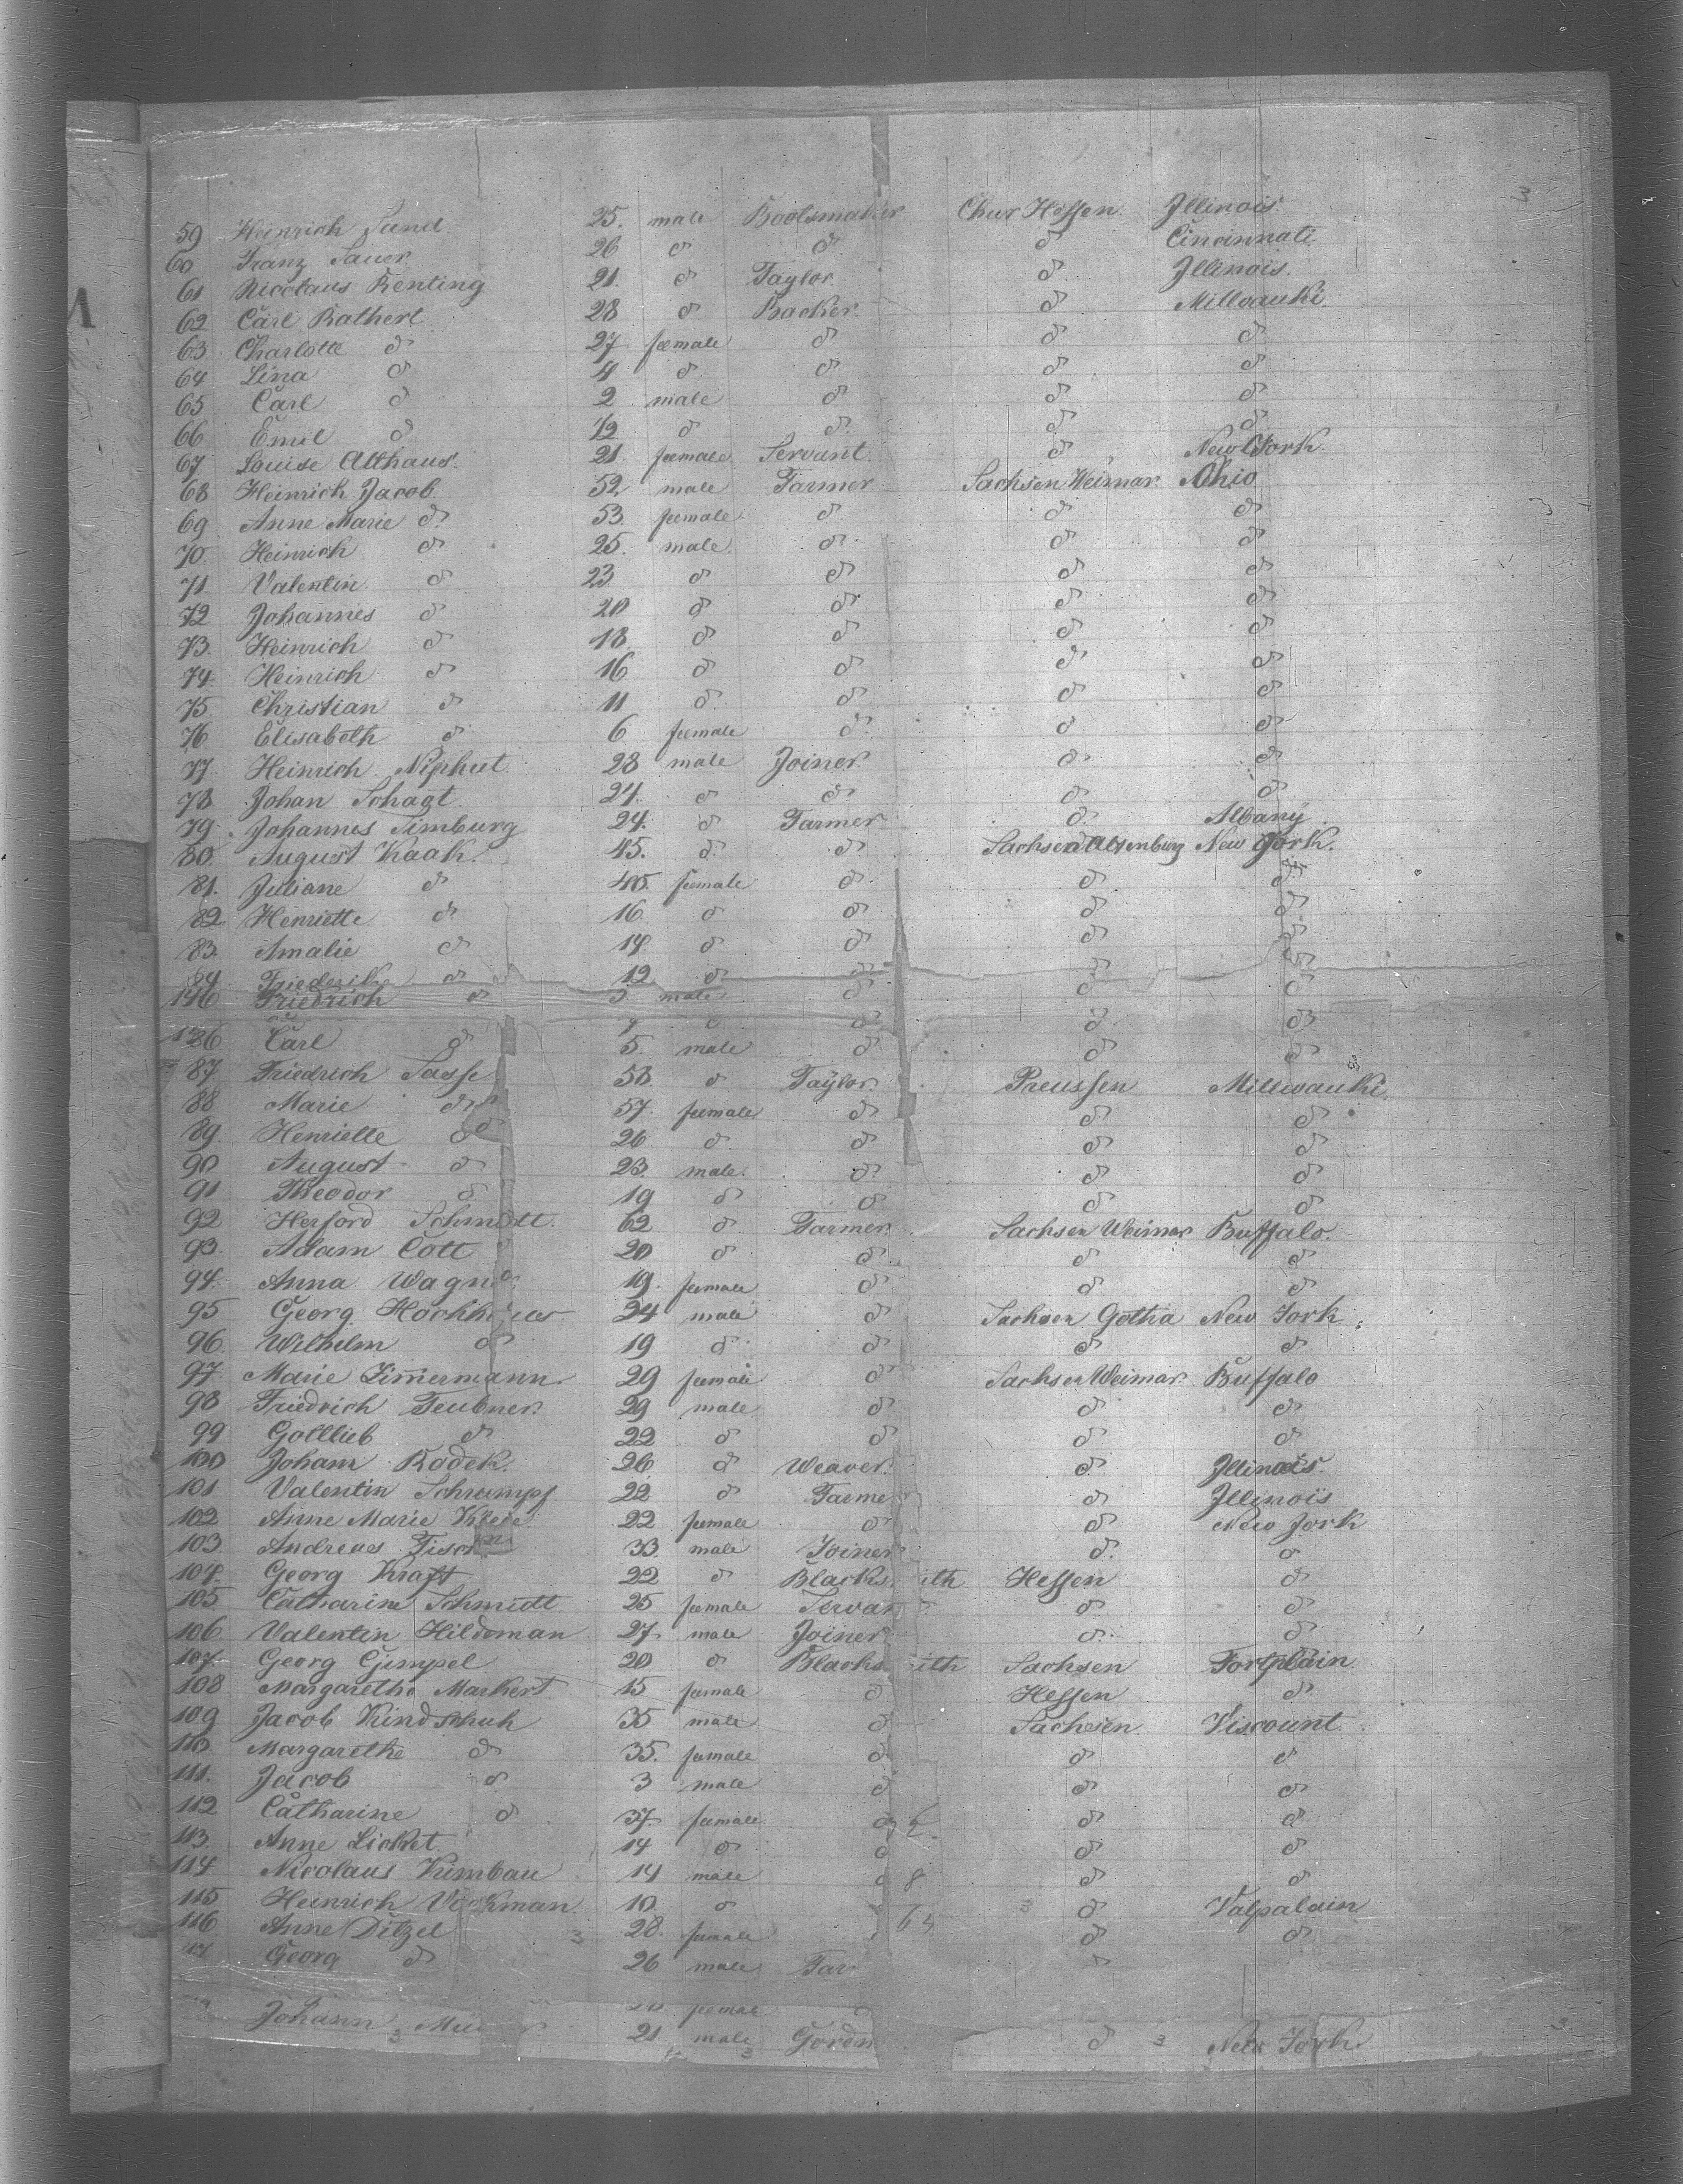 3
59 Heinrich Sand 25. male Bootsmaker Chur Hessen. Illinois.
60 Franz Sauer 26 do do do Cincinnati
61 Nicolaus Renting 21. do Taylor do Illinois.
62 Carl Rathert 28 do Backer do Millvauki
63 Charlotte do 27 feemale do do do
64 Lina do 4 do do do do
65 Carl do 2 male do do do
66 Emil do 1/2 do do do do
67 Louise Althaus. 21. feemale Servant. do New York.
68 Heinrich Jacob 52 male Farmer Sachsen Weimar Ohio
69 Anne Marie do 53. feemale do do do
70. Heinrich do 25. male do do do
71 Valentin do 23 do do do do
72 Johannes do 20 do do do do
73. Heinrich do 18 do do do do
74 Heinrich do 16 do do do do
75 Christian do 11 do do do do
76 Elisabeth do 6 feemale do do do
77 Heinrich Niphut 28 male Joiner do do
78 Johan Schagt 24. do do do do
79. Johannes Simburg 24. do Farmer do Albany
80. August Kaak. 45. do do Sachsen Altenburg New York.
81. Juliane do 40. feemale do do do
82 Henriette do 16 do do do do
83. Amalie do 14. do do do do
84 Friederike do 12 do do do do
Friedrich do male do do do
86 Carl do 5. male do do do
87 Friedrich Sasse 58. do Taylor Preussen Millwauki.
88 Marie do 57. feemale do do do
89 Henriette do 26 do do do do
90 August do 23 male. do do do
91 Theodor do 19 do do do do
92 Herford Schmidt. 62 do Farmer Sachsen Weimar Buffalo.
93. Adam Cott 20 do do do do
94. Anna Wagn 19. feemale do do do
95 Georg 24 male do Sachsen Gotha New York
96 Wilhelm do 19 do do do do
97 Marie Zimermann 29 feemale do Sachsen Weimar Buffalo
98 Friedrich Teubner. 29 male do do do
99 Gottlieb do 22 do do do do
100 Johann Rodek. 26 do Weaver. do Illinois.
101 Valentin Schrumpf 22 do Farme do Illinois
102 Anne Marie 22 feemale do do New York
103. Andreas Fisch 33. male Joiner do do
104. Georg Kraft 22 do Blacks ith Hessen do
105 Catharine Schmidt 25 feemale Servan do do
106 Valentin Hildeman 27 male Joiner do do
107. Georg Gimpel 20 do Blacks ith Sachsen Fortplain
108 Margarethe Markert 15 feemale do Hessen do
109 Jacob Kindschuh 35 male do Sachsen Viscount
110. Margarethe do 35. feemale do do do
111. Jacob do 3 male do do do
112 Catharine do 37. feemale do do do
113. Anne Licket 14 do do do do
114 Nicolaus Kumbau 14 male do 8 do do
115 Heinrich 10 do do Valpalain
116 Anne Ditzel 28. feemale 64 do do
Georg do 26 male Far do
feemale
Johann 21 male Gordn do New York